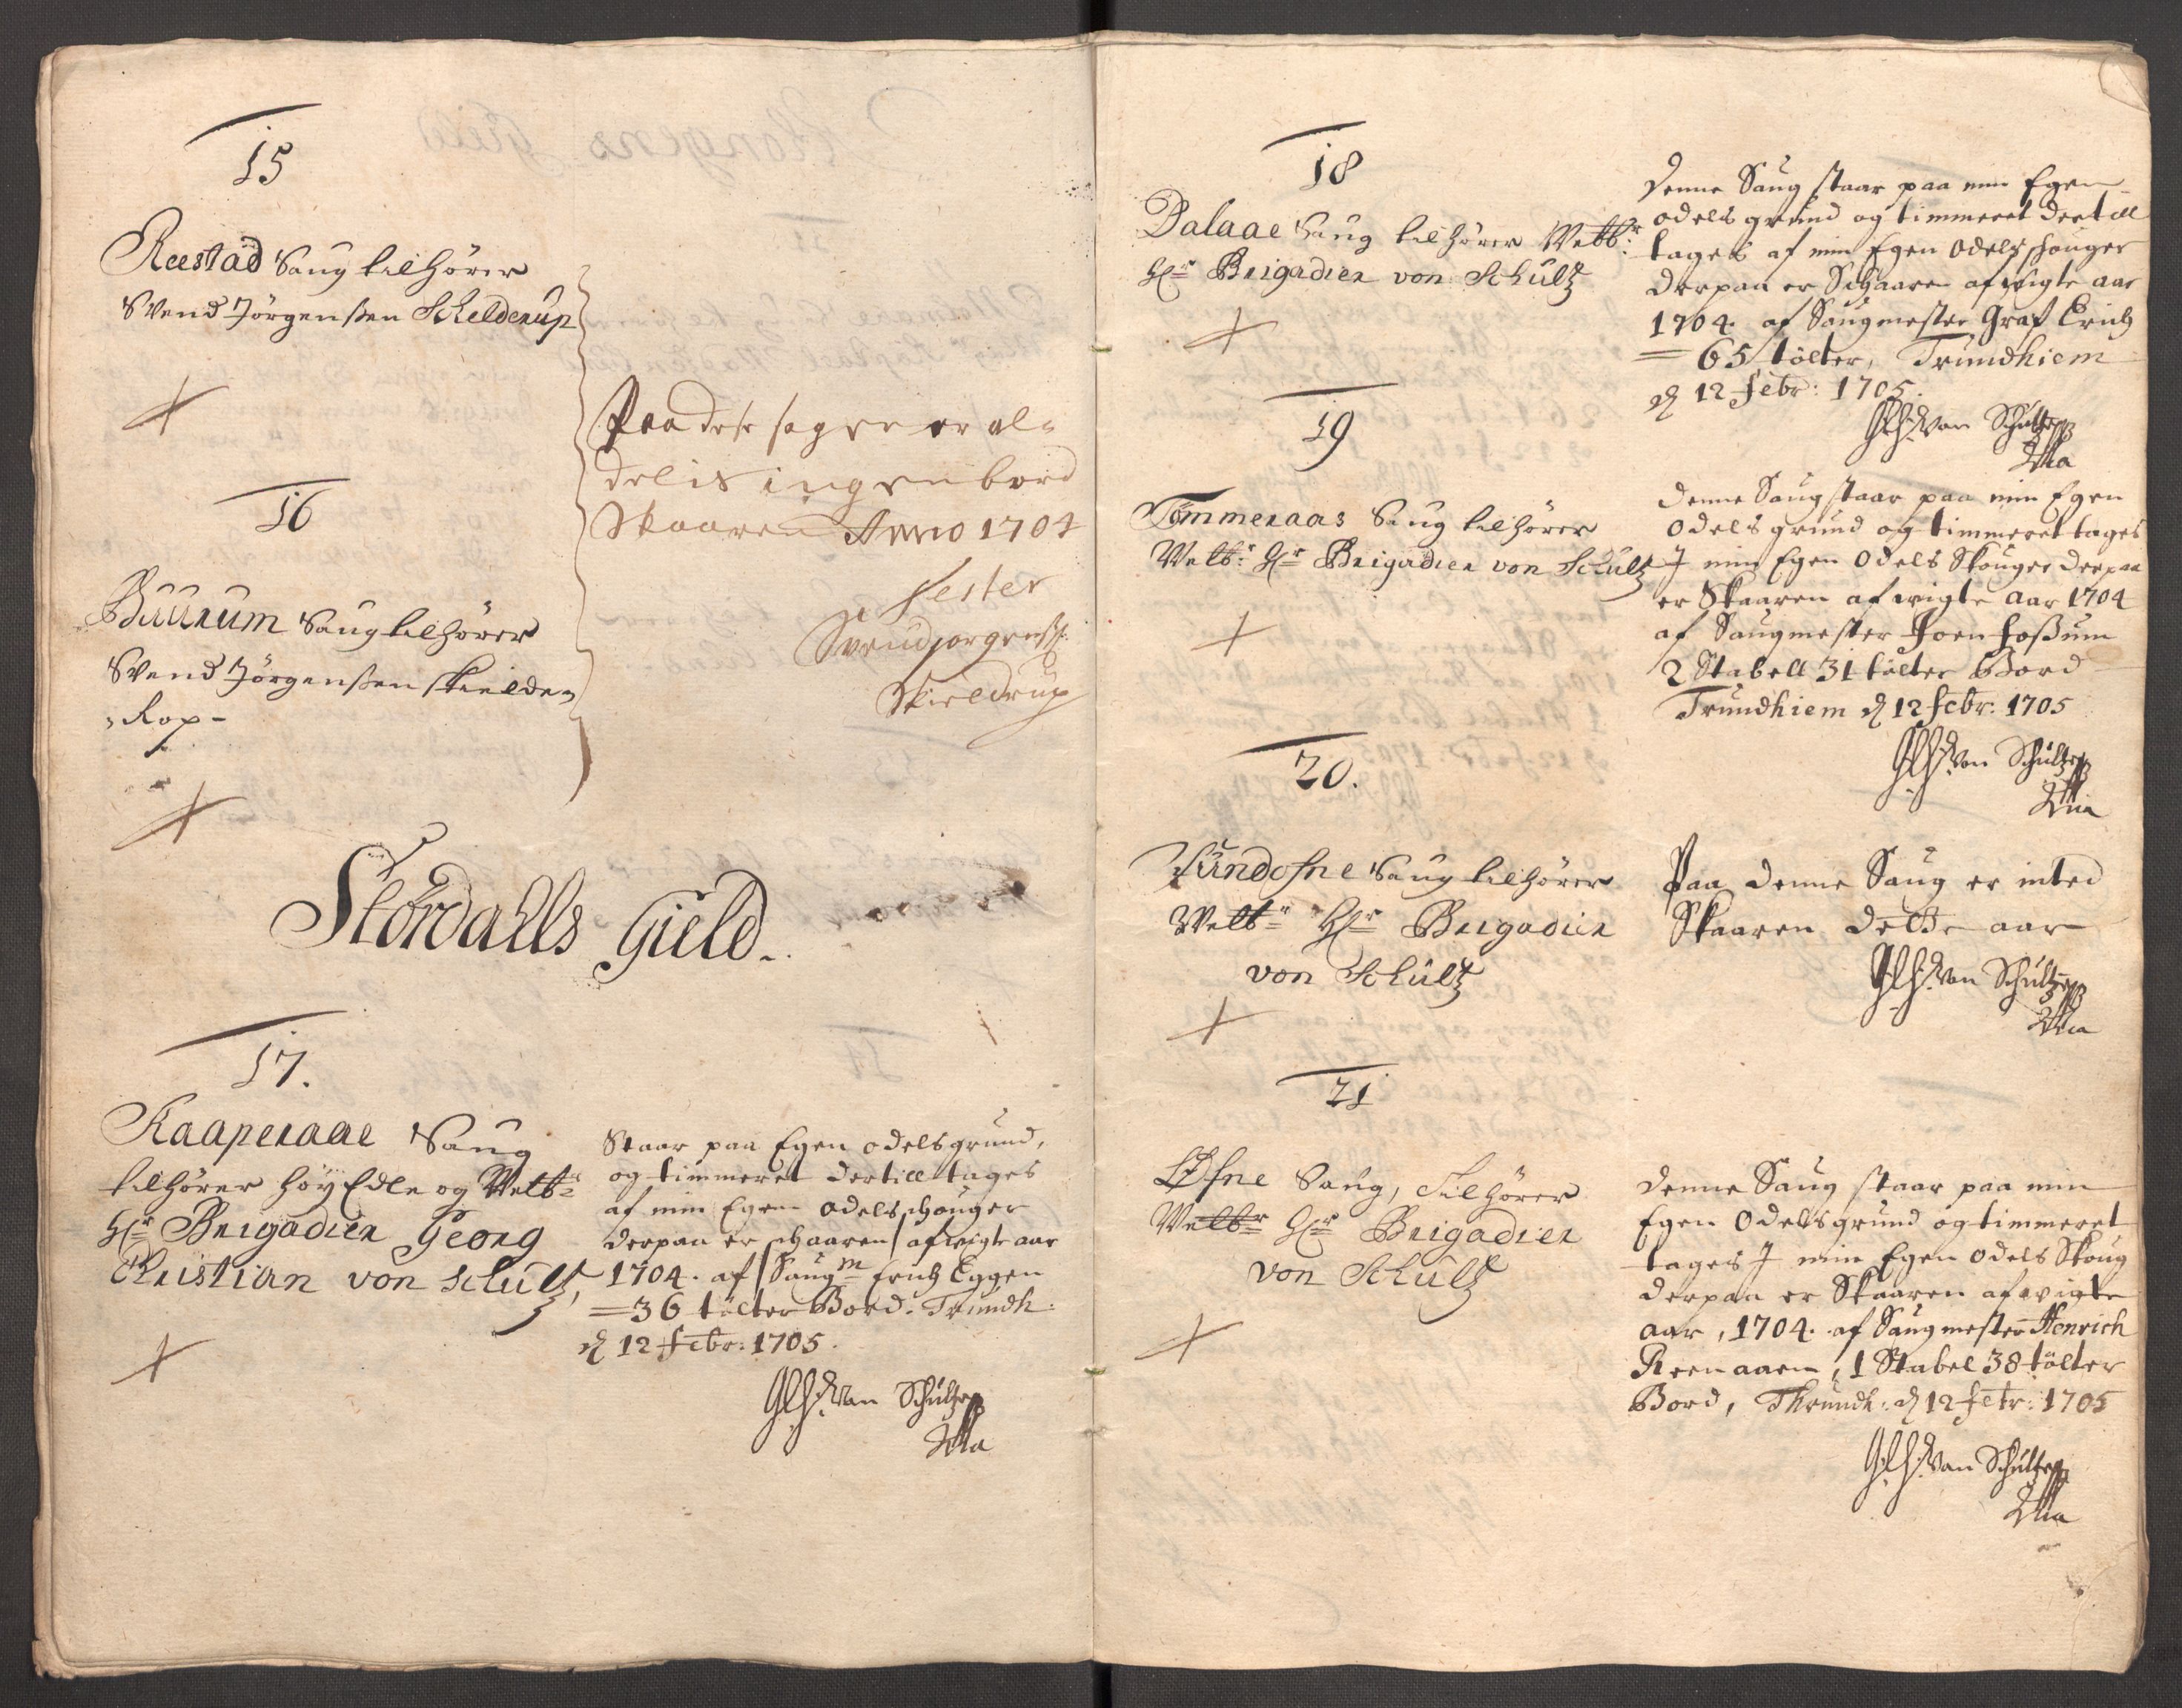 15
Reestad Saug tilhører
Svend Jörgenßen Schelderup
Paa desse sager er al-
delis ingen bord
Skaaren Anno 1704
Tester
Svend jørgenß:
Skieldrup
16
Buurum Saug tilhører
Svend Jörgenßen skielde-
-rop-
Stördalls Gield.
17.
Kaaperaae Saug
tilhører høy Edle og Velb:
Hr Brigadier Georg
Christian von Schultz,
Staar paa Egen odels grund,
og timmeret dertill tages
af min Egen odels schouger
derpaa er schaaren afvigte aar
1704. af Saugm Erich Eggen
=36 tölter Bord. Trundh:
d 12 Febr: 1705.
von Schultz
18
Dalaae Saug tilhører Velb:
Hr Brigadier von Schultz
Denne Saug staar paa min Egen
odels grund og timmeret dertill
tages af min Egen odels schouger
derpaa er Schaaren afvigte aar
1704. af Saugmester Graf Erich
=65 tölter, Trundhiem
d 12 Febr: 1705.
von Schultz
19
Tömmeraas Saug tilhører
Velb: Hr Brigadier von Schultz
Denne Saug staar paa min Egen
Odels grund og timmeret tages
I min Egen Odels Skouger derpaa
er Skaaren afvigte aar 1704
af Saugmester Joen Foßum
2 Stabell 31 tölter Bord
Trundhiem d 12 Febr: 1705
von Schultz
20.
Fundofne Saug tilhører
Velbr Hr Brigadier
von Schültz
Paa denne Saug er inted
Skaaren dette aar
von Schultz
21
Øfne Saug, Tilhörer
Velbr Hr Brigadier
von Schultz
Denne Saug staar paa min
Egen Odels grund og timmeret
tages I min Egen Odels Skoug
derpaa er Skaaren afvigte
aar, 1704. af Saugmester Henrich
Reenaaen, 1 Stabel 38 tölter
Bord, Thrundh: d 12 Febr: 1705
von Schultz